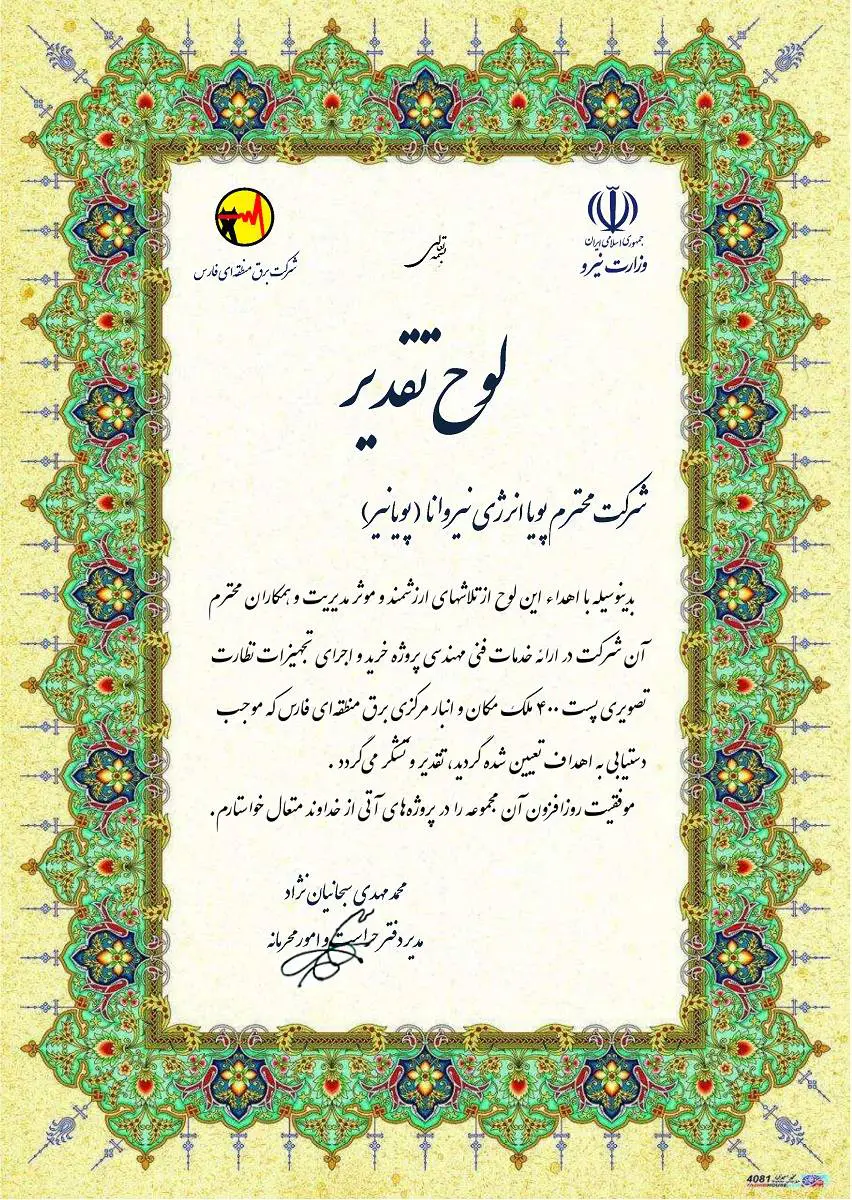 جمهوری اسلامی ایران
وزارت نیرو
بسمه تعالی
شرکت برق منطقه‌ای فارس
لوح تقدیر
شرکت محترم پویا انرژی نیروانا (پویانیر)
بدینوسیله با اهداء این لوح از تلاشهای ارزشمند و موثر مدیریت و همکاران محترم
آن شرکت در ارائه خدمات فنی مهندسی پروژه خرید و اجرای تجهیزات نظارت
تصویری پست ۴۰۰ ملک مکان و انبار مرکزی برق منطقه‌ای فارس که موجب
دستیابی به اهداف تعیین شده گردید، تقدیر و تشکر می‌گردد .
موفقیت روزافزون آن مجموعه را در پروژه‌های آتی از خداوند متعال خواستارم.
محمد مهدی سبحانیان نژاد
مدیر دفتر حراست و امور محرمانه
4081